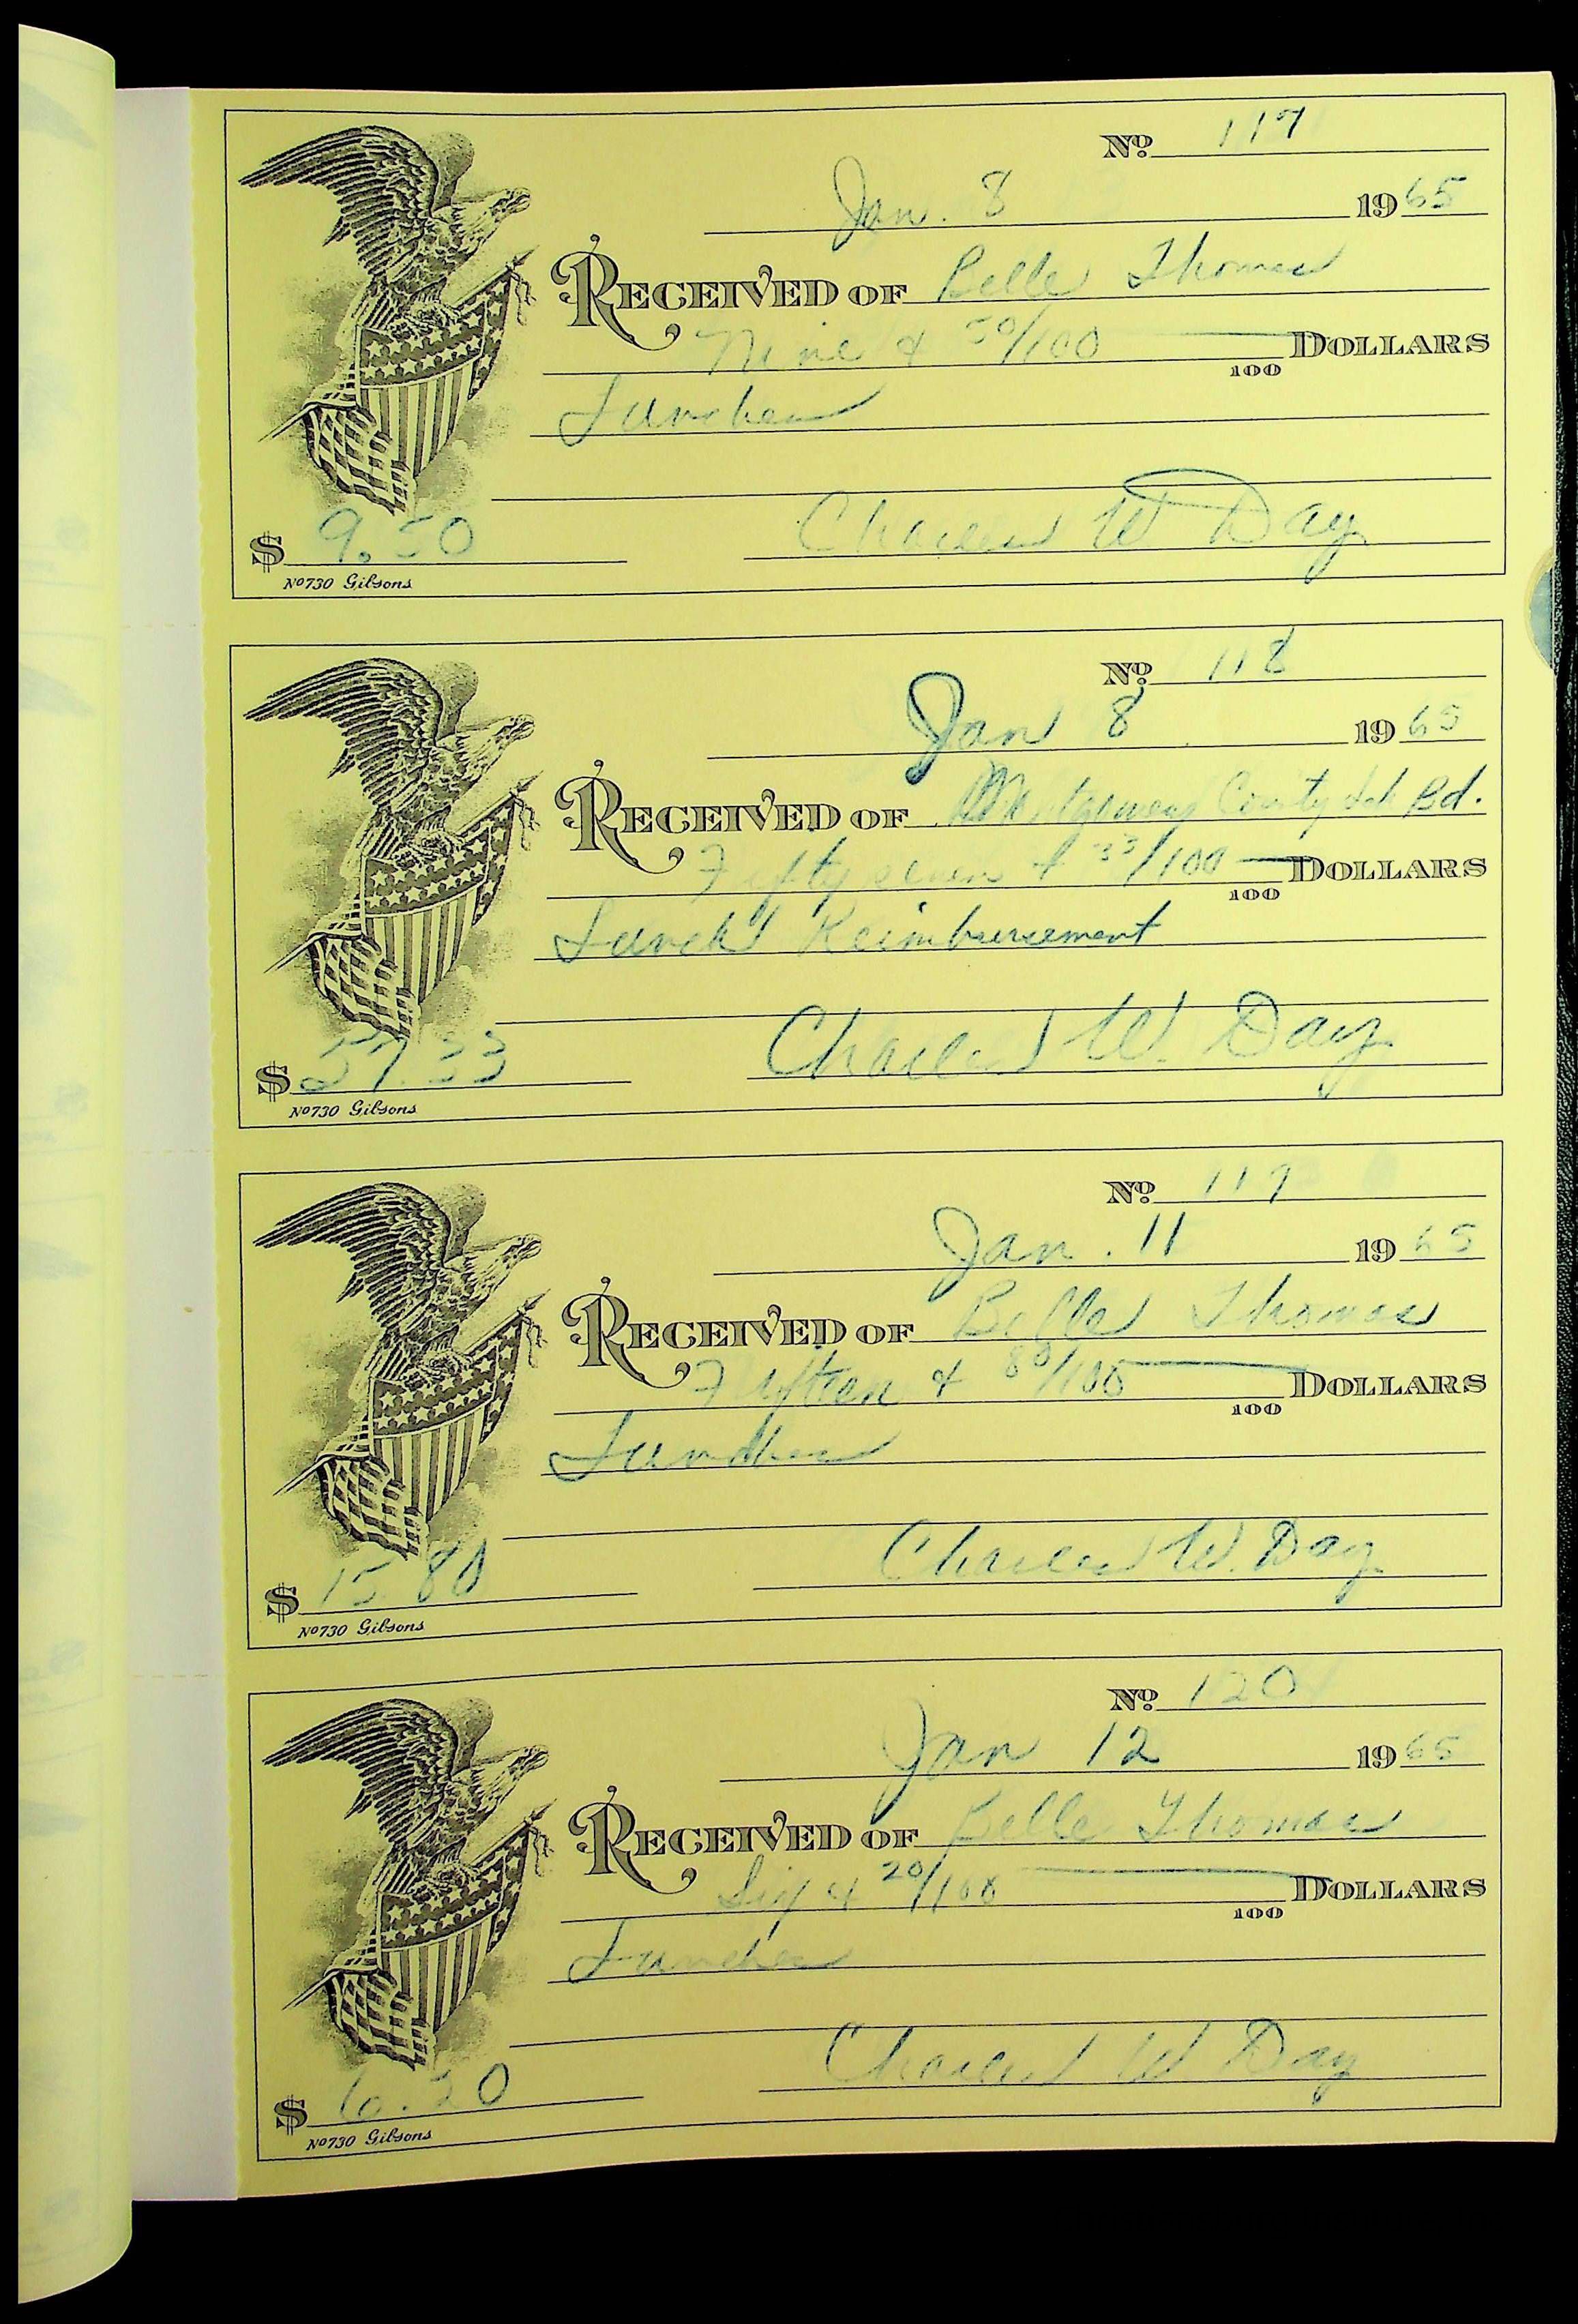 No. 117
Jan. 8 1965
RECEIVED OF Belle Thomas
Nine & 50/100 DOLLARS
100
Lunches
Charles W Day
$ 9.50
No 730 Gibsons
No. 118
Jan 8 1965
RECEIVED OF Montgomery County Sch Bd.
Fifty seven & 33/100 DOLLARS
100
Lunch Reimbursement
Charles W. Day
$ 57.33
No 730 Gibsons
No. 119
Jan. 11 1965
RECEIVED OF Belle Thomas
Fifteen & 80/100 DOLLARS
100
Lunches
Charles W. Day
$ 15.80
No 730 Gibsons
No. 120
Jan 12 1965
RECEIVED OF Belle Thomas
Six & 20/100 DOLLARS
100
Lunches
Charles W Day
$ 6.20
No 730 Gibsons